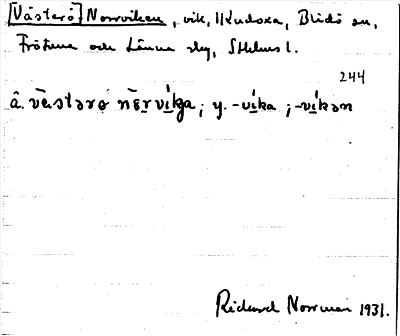 [Västerö] Norrviken, vik, Blidö sn,
Frötuna och Länna skg, Sthlms l.
244
â. västərø nѐrvika; y. -vika; -vikən
Rickard Norrman 1931.